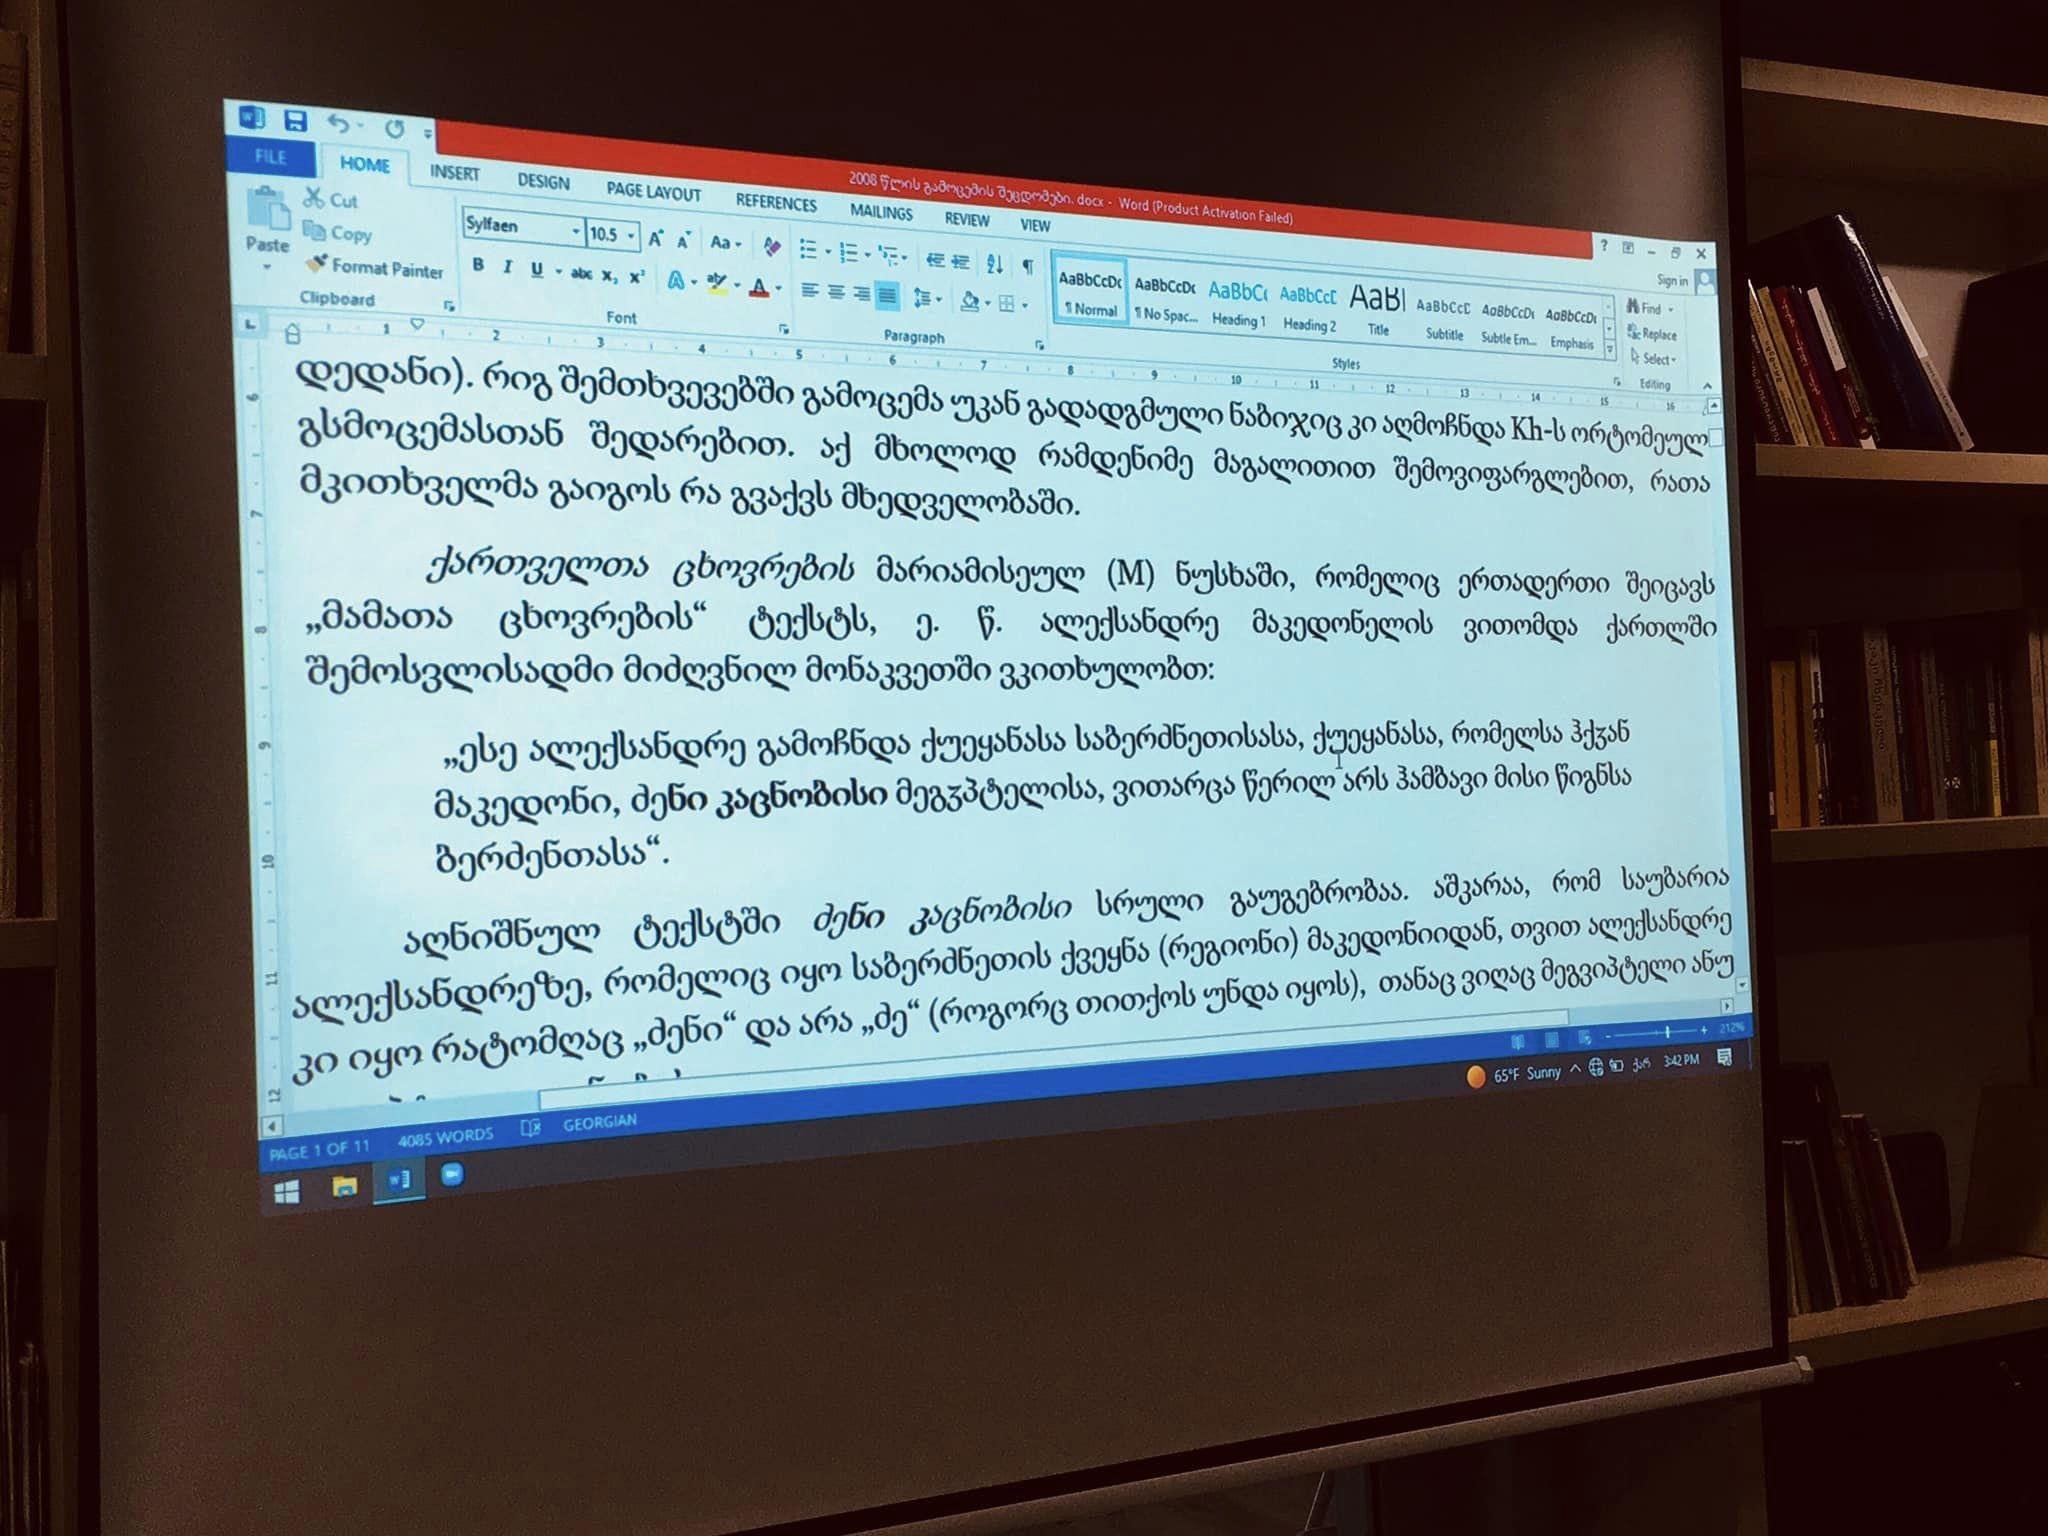 2008 წლის გამოცემის შეცდომები. docx - Word (Product Activation Failed)
FILE HOME INSERT DESIGN PAGE LAYOUT REFERENCES MAILINGS REVIEW VIEW
Sign in
Paste
Cut
Copy
Format Painter
Clipboard
Sylfaen 10.5
Font
Paragraph
AaBbCcDc AaBbCcDc AaBbC( AaBbCcD AaBl AaBbCcD AaBbCcDt AaBbCcDt
¶ Normal ¶ No Spac... Heading 1 Heading 2 Title Subtitle Subtle Em... Emphasis
Styles
Find
Replace
Select
Editing
1 2 3 4 5 6 7 8 9 10 11 12 13 14 15 16
დედანი). რიგ შემთხვევებში გამოცემა უკან გადადგმული ნაბიჯიც კი აღმოჩნდა Kh-ს ორტომეულ
გსმოცემასთან შედარებით. აქ მხოლოდ რამდენიმე მაგალითით შემოვიფარგლებით, რათა
მკითხველმა გაიგოს რა გვაქვს მხედველობაში.
ქართველთა ცხოვრების მარიამისეულ (M) ნუსხაში, რომელიც ერთადერთი შეიცავს
„მამათა ცხოვრების“ ტექსტს, ე. წ. ალექსანდრე მაკედონელის ვითომდა ქართლში
შემოსვლისადმი მიძღვნილ მონაკვეთში ვკითხულობთ:
„ესე ალექსანდრე გამოჩნდა ქუეყანასა საბერძნეთისასა, ქუეყანასა, რომელსა ჰქჳან
მაკედონი, ძენი კაცნობისი მეგჳპტელისა, ვითარცა წერილ არს ჰამბავი მისი წიგნსა
ბერძენთასა“.
აღნიშნულ ტექსტში ძენი კაცნობისი სრული გაუგებრობაა. აშკარაა, რომ საუბარია
ალექსანდრეზე, რომელიც იყო საბერძნეთის ქვეყნა (რეგიონი) მაკედონიიდან, თვით ალექსანდრე
კი იყო რატომღაც „ძენი“ და არა „ძე“ (როგორც თითქოს უნდა იყოს), თანაც ვიღაც მეგვიპტელი ანუ
212%
PAGE 1 OF 11 4085 WORDS GEORGIAN
65°F Sunny ქარ 3:42 PM